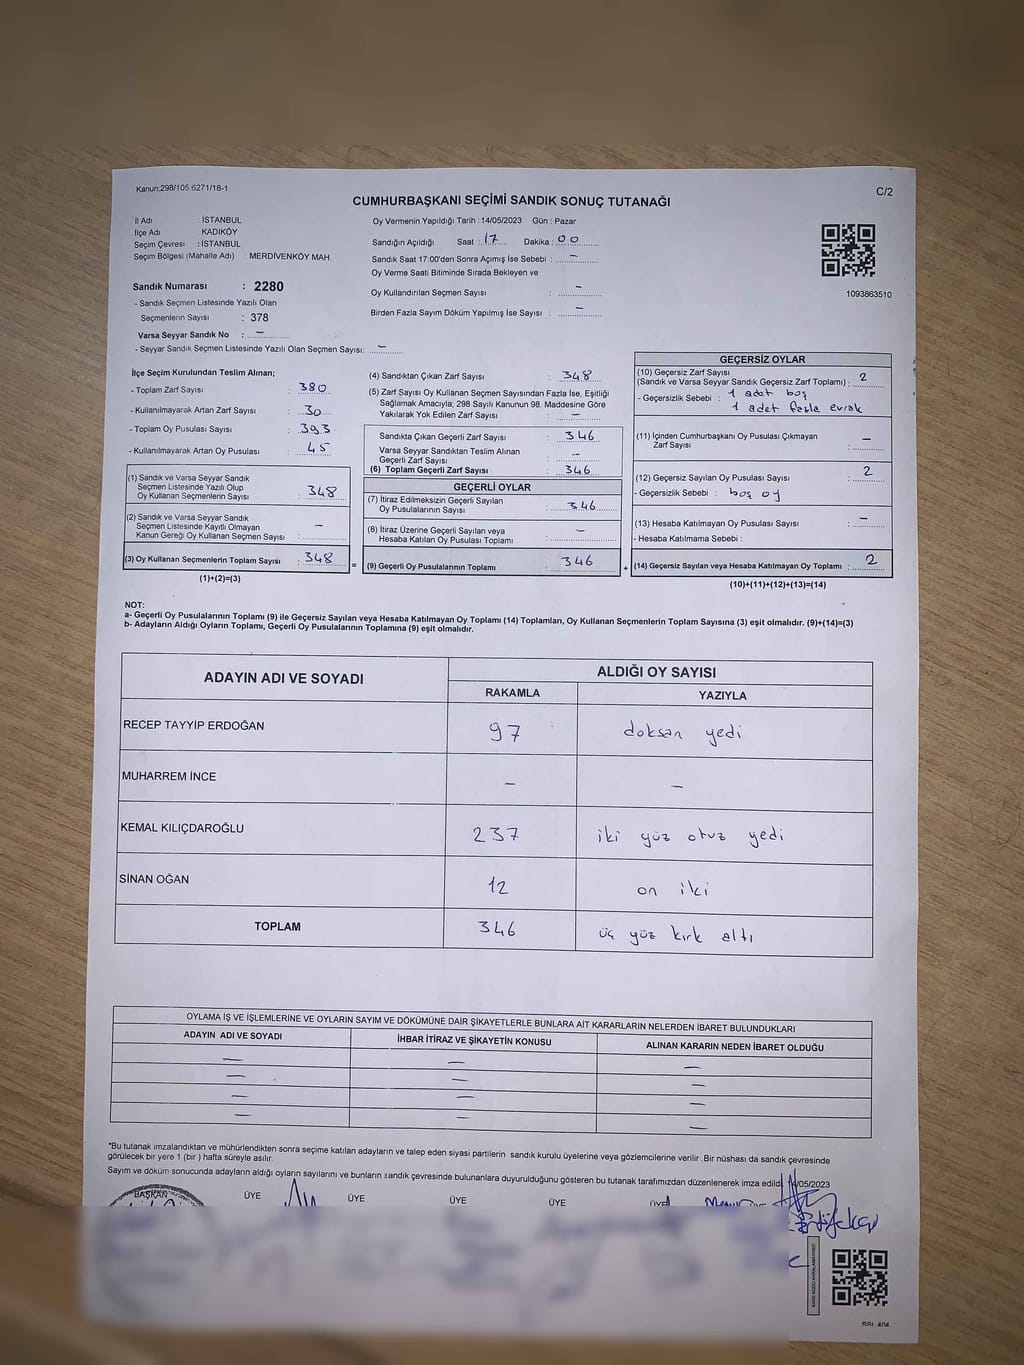 Kanun:298/105 6271/18-1
C/2
CUMHURBAŞKANI SEÇİMİ SANDIK SONUÇ TUTANAĞI
İl Adı : İSTANBUL
İlçe Adı : KADIKÖY
Seçim Çevresi : İSTANBUL
Seçim Bölgesi (Mahalle Adı) : MERDİVENKÖY MAH.
Sandık Numarası : 2280
- Sandık Seçmen Listesinde Yazılı Olan
Seçmenlerin Sayısı : 378
Varsa Seyyar Sandık No : –
- Seyyar Sandık Seçmen Listesinde Yazılı Olan Seçmen Sayısı: –
Oy Vermenin Yapıldığı Tarih : 14/05/2023 Gün : Pazar
Sandığın Açıldığı Saat : 17 Dakika : 00
Sandık Saat 17:00'den Sonra Açımış İse Sebebi : –
Oy Verme Saati Bitiminde Sırada Bekleyen ve
Oy Kullandırılan Seçmen Sayısı : –
Birden Fazla Sayım Döküm Yapılmış İse Sayısı : –
1093863510
İlçe Seçim Kurulundan Teslim Alınan;
- Toplam Zarf Sayısı : 380
- Kullanılmayarak Artan Zarf Sayısı : 30
- Toplam Oy Pusulası Sayısı : 393
- Kullanılmayarak Artan Oy Pusulası : 45
(1) Sandık ve Varsa Seyyar Sandık
Seçmen Listesinde Yazılı Olup
Oy Kullanan Seçmenlerin Sayısı : 348
(2) Sandık ve Varsa Seyyar Sandık
Seçmen Listesinde Kayıtlı Olmayan
Kanun Gereği Oy Kullanan Seçmen Sayısı : –
(3) Oy Kullanan Seçmenlerin Toplam Sayısı : 348
(1)+(2)=(3)
(4) Sandıktan Çıkan Zarf Sayısı : 348
(5) Zarf Sayısı Oy Kullanan Seçmen Sayısından Fazla İse, Eşitliği
Sağlamak Amacıyla; 298 Sayılı Kanunun 98. Maddesine Göre
Yakılarak Yok Edilen Zarf Sayısı : –
Sandıkta Çıkan Geçerli Zarf Sayısı : 346
Varsa Seyyar Sandıktan Teslim Alınan
Geçerli Zarf Sayısı : –
(6) Toplam Geçerli Zarf Sayısı : 346
GEÇERLİ OYLAR
(7) İtiraz Edilmeksizin Geçerli Sayılan
Oy Pusulalarının Sayısı : 346
(8) İtiraz Üzerine Geçerli Sayılan veya
Hesaba Katılan Oy Pusulası Toplamı : –
= (9) Geçerli Oy Pusulalarının Toplamı : 346
GEÇERSİZ OYLAR
(10) Geçersiz Zarf Sayısı
(Sandık ve Varsa Seyyar Sandık Geçersiz Zarf Toplamı) : 2
- Geçersizlik Sebebi : 1 adet boş
1 adet fazla evrak
(11) İçinden Cumhurbaşkanı Oy Pusulası Çıkmayan
Zarf Sayısı : –
(12) Geçersiz Sayılan Oy Pusulası Sayısı : 2
- Geçersizlik Sebebi : boş oy
(13) Hesaba Katılmayan Oy Pusulası Sayısı : –
- Hesaba Katılmama Sebebi :
+ (14) Geçersiz Sayılan veya Hesaba Katılmayan Oy Toplamı : 2
(10)+(11)+(12)+(13)=(14)
NOT:
a- Geçerli Oy Pusulalarının Toplamı (9) ile Geçersiz Sayılan veya Hesaba Katılmayan Oy Toplamı (14) Toplamları, Oy Kullanan Seçmenlerin Toplam Sayısına (3) eşit olmalıdır. (9)+(14)=(3)
b- Adayların Aldığı Oyların Toplamı, Geçerli Oy Pusulalarının Toplamına (9) eşit olmalıdır.
ADAYIN ADI VE SOYADI ALDIĞI OY SAYISI
RAKAMLA YAZIYLA
RECEP TAYYİP ERDOĞAN 97 doksan yedi
MUHARREM İNCE – –
KEMAL KILIÇDAROĞLU 237 iki yüz otuz yedi
SİNAN OĞAN 12 on iki
TOPLAM 346 üç yüz kırk altı
OYLAMA İŞ VE İŞLEMLERİNE VE OYLARIN SAYIM VE DÖKÜMÜNE DAİR ŞİKAYETLERLE BUNLARA AİT KARARLARIN NELERDEN İBARET BULUNDUKLARI
ADAYIN ADI VE SOYADI İHBAR İTİRAZ VE ŞİKAYETİN KONUSU ALINAN KARARIN NEDEN İBARET OLDUĞU
– – –
– – –
– – –
– – –
*Bu tutanak imzalandıktan ve mühürlendikten sonra seçime katılan adayların ve talep eden siyasi partilerin sandık kurulu üyelerine veya gözlemcilerine verilir .Bir nüshası da sandık çevresinde
görülecek bir yere 1 (bir ) hafta süreyle asılır.
Sayım ve döküm sonucunda adayların aldığı oyların sayılarını ve bunların sandık çevresinde bulunanlara duyurulduğunu gösteren bu tutanak tarafımızdan düzenlenerek imza edildi. /05/2023
BAŞKAN ÜYE ÜYE ÜYE ÜYE ÜYE